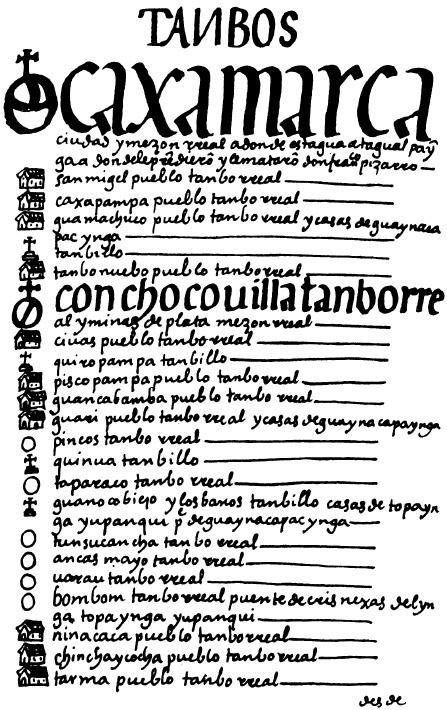 TANBOS
caxamarca
ciudad y mezon rreal adonde estaua atagualpa yn
ga a don de le prẽdierõ y le mataro don fraco pizarro
san migel pueblo tanbo rreal
caxapampa pueblo tanbo rreal
guamachuco pueblo tanbo rreal y casas de guayna ca
pac ynga
tanbillo
tanbo nuebo pueblo tanbo rreal
conchoco uilla tanbo rre
al y minas de plata mezon rreal
ciuas pueblo tanbo rreal
quiropampa tanbillo
piscopampa pueblo tanbo rreal
guancabamba pueblo tanbo rreal
guari pueblo tanbo rreal y casas de guayna capa ynga
pincos tanbo rreal
quinua tanbillo
taparaco tanbo rreal
guanoco biejo y los banos tanbillo casas de topa yn
ga yupanqui p̃ de guaynacapac ynga
tunsucancha tanbo rreal
ancas mayo tanbo rreal
uarau tanbo rreal
bombom tanbo rreal puente de cris nexas del yn
ga topa ynga yupanqui
ninacaca pueblo tanbo rreal
chinchaycocha pueblo tanbo rreal
tarma pueblo tanbo rreal
desde